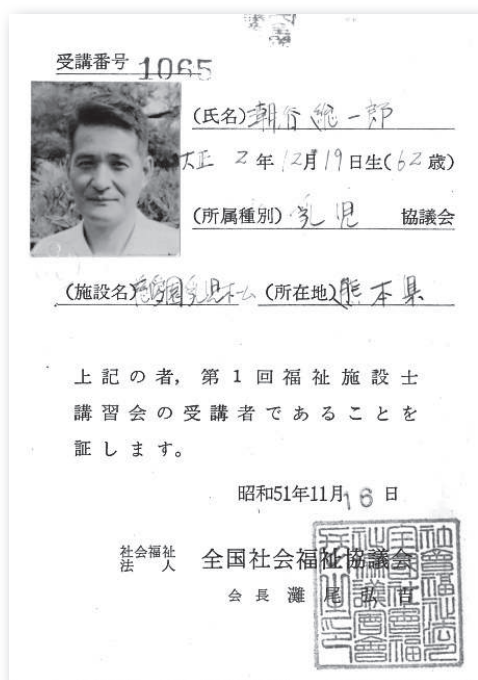 受講番号 1065
(氏名)朝谷総一郎
大正 2年12月19日生(62歳)
(所属種別) 乳児 協議会
(施設名) 乳児ホーム (所在地)熊本県
上記の者,第1回福祉施設士
講習会の受講者であることを
証します。
昭和51年11月16日
社会福祉
法人 全国社会福祉協議会
会長 灘尾弘吉